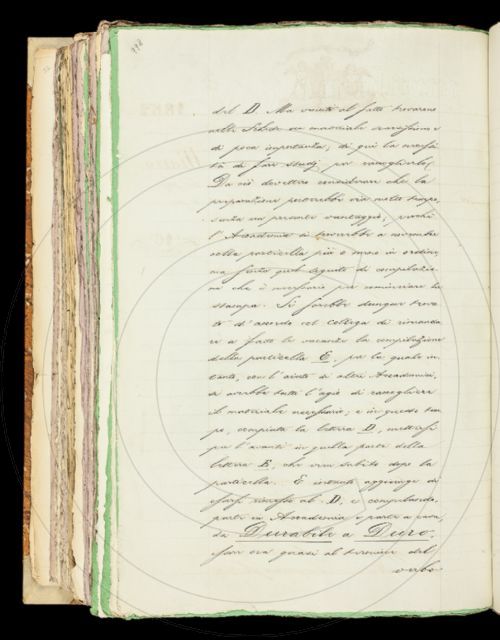 del D. Ma venuto al fatto trovarono
nelle Schede un materiale scarsissimo e
di poca importanza; di qui la necessi-
tà di fare studj per raccoglierlo.
Da ciò dovettero considerare che la
preparazione porterebbe via molto tempo,
senza un presente vantaggio; perchè
l'Accademia si troverebbe a novembre
colla particella più o meno in ordine,
ma senza quel seguito di compilazio-
ne che è necessario per cominciare la
stampa. Si sarebbe dunque trova-
to d'accordo col Collega di rimanda-
re a fatte le vacanze la compilazione
della particella E, per la quale in-
tanto, con l'aiuto di altri Accademici,
si avrebbe tutto l'agio di raccogliere
il materiale necessario; e in questo tem-
po, compiuta la lettera D, mettersi
più l'avanti in quella parte della
lettera E, che vien subito dopo la
particella. E intanto aggiunge di
essersi rimesso al D, e compilando,
parte in Accademia e parte a casa,
da Durabile a Duro,
esser ora quasi al termine del